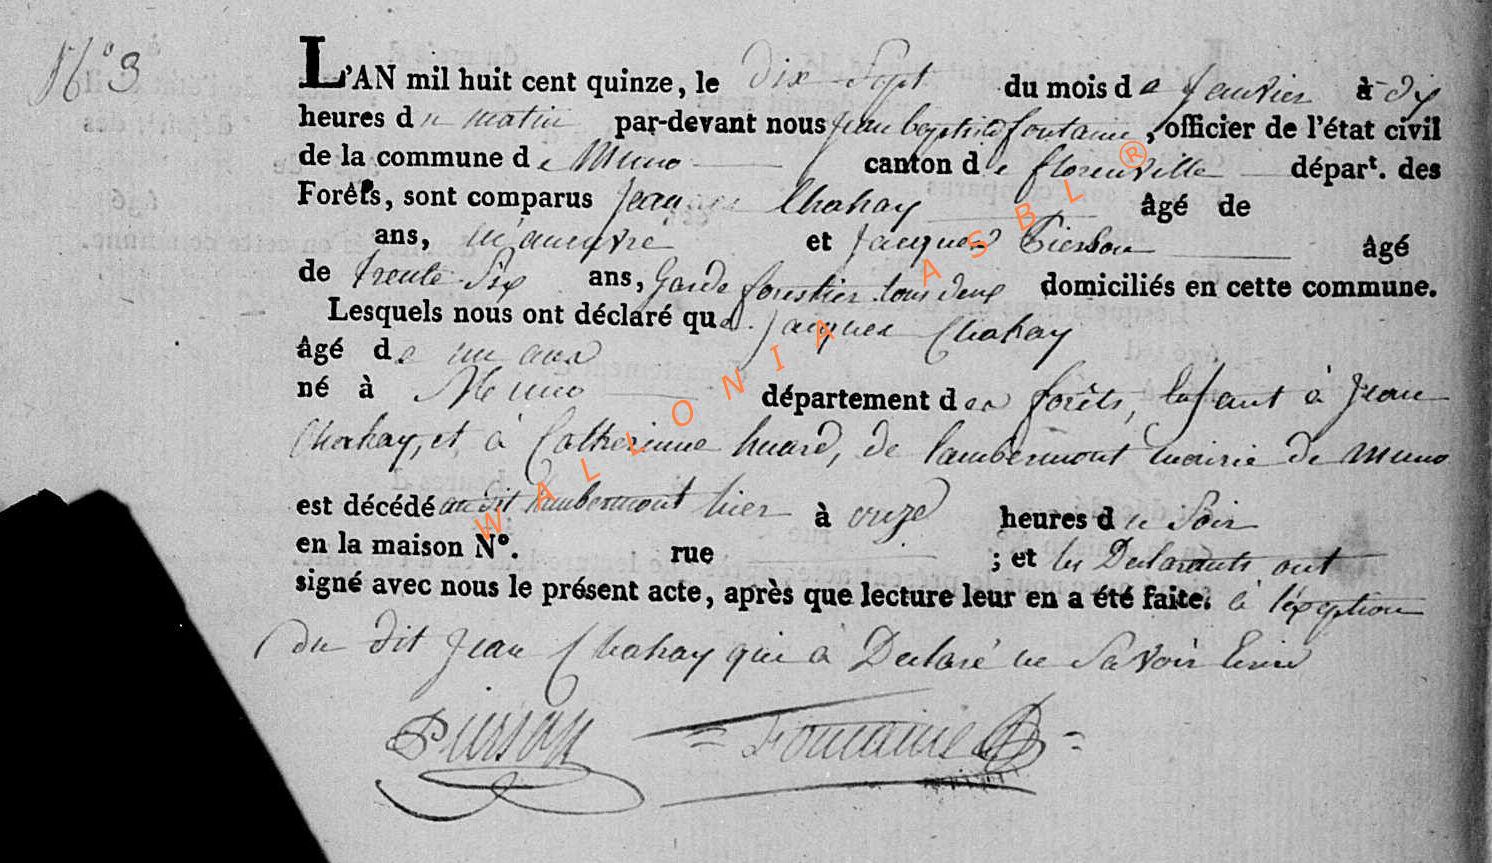 N° 3
L'AN mil huit cent quinze, le dix Sept du mois de Janvier à dix
heures du matin par-devant nous jean baptiste fontaine, officier de l'état civil
de la commune de Muno canton de florenville départ. des
Forêts, sont comparus Jean Chahay âgé de
ans, manœuvre et Jacques Pierson âgé
de trente Six ans, Garde forestier tous deux domiciliés en cette commune.
Lesquels nous ont déclaré que Jacques Chahay
âgé de un ans
né à Muno département des forêts, Enfant à Jean
Chahay, et à Catherinne huard, de lambermont mairie de Muno
est décédé au dit lambermont hier à onze heures du Soir
en la maison N°. rue ; et les Declarants ont
signé avec nous le présent acte, après que lecture leur en a été faite. à l'exception
du dit Jean Chahay qui a Declaré ne Savoir Ecrire
Pierson Fontaine
WALLONIA ASBL ®